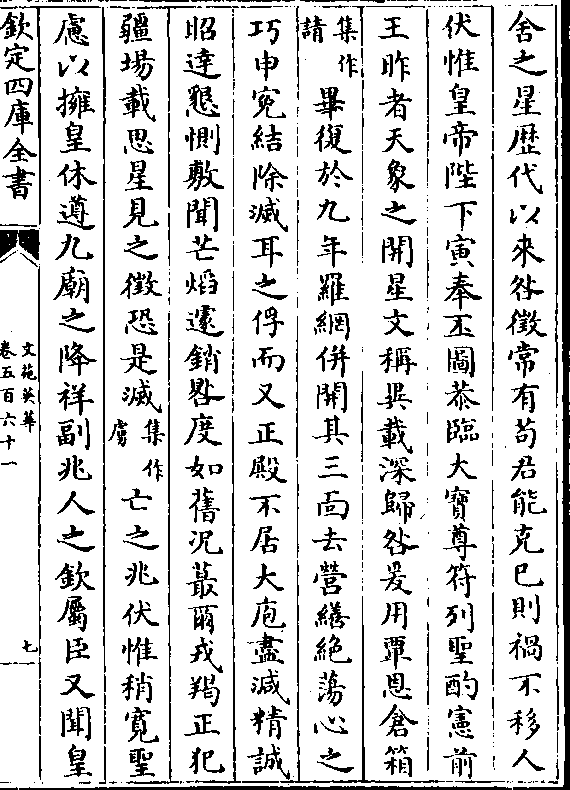 舍之星歴代以来咎徴常有苟君能克已則禍不移人
伏惟皇帝陛下寅奉丕圖恭臨大寶尊符列聖酌憲前
王昨者天象之開星文稱異載深歸咎爰用覃恩倉箱
集作請畢復於九年羅網併開其三面去營繕絶蕩心之
巧申寃結除滅耳之俘而又正殿不居大庖盡減精誠
昭達懇惻敷聞芒熖遽銷晷度如舊况蕞爾戎羯正犯
疆場載思星見之徴恐是滅集作虜亡之兆伏惟稍寛聖
慮以擁皇休遵九廟之降祥副兆人之欽屬臣又聞皇
欽定四庫全書
文苑英華
卷五百六十一
七